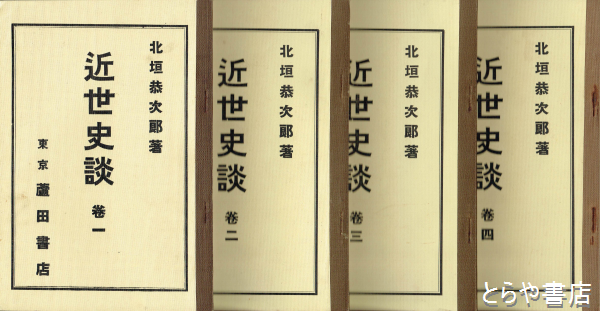 北垣恭次郎著
近世史談
卷一
東京 蘆田書店
北垣恭次郎著
近世史談
卷二
北垣恭次郎著
近世史談
卷三
北垣恭次郎著
近世史談
卷四
とらや書店